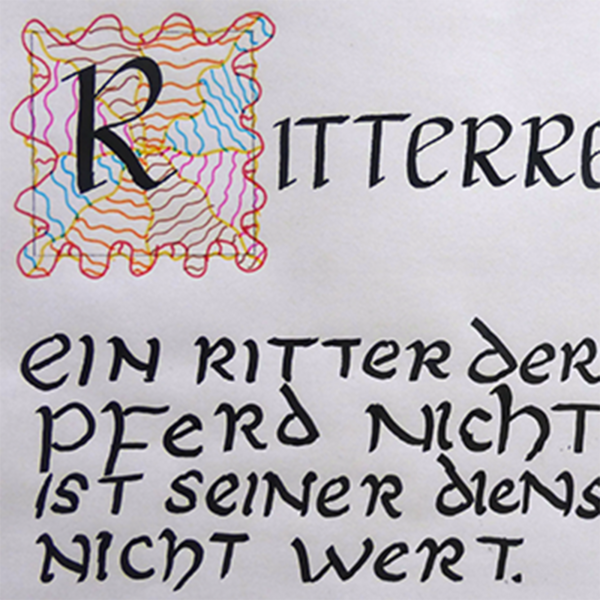 RITTERRE
EIN RITTER DER
PFERD NICHT
IST SEINER DIENS
NICHT WERT.